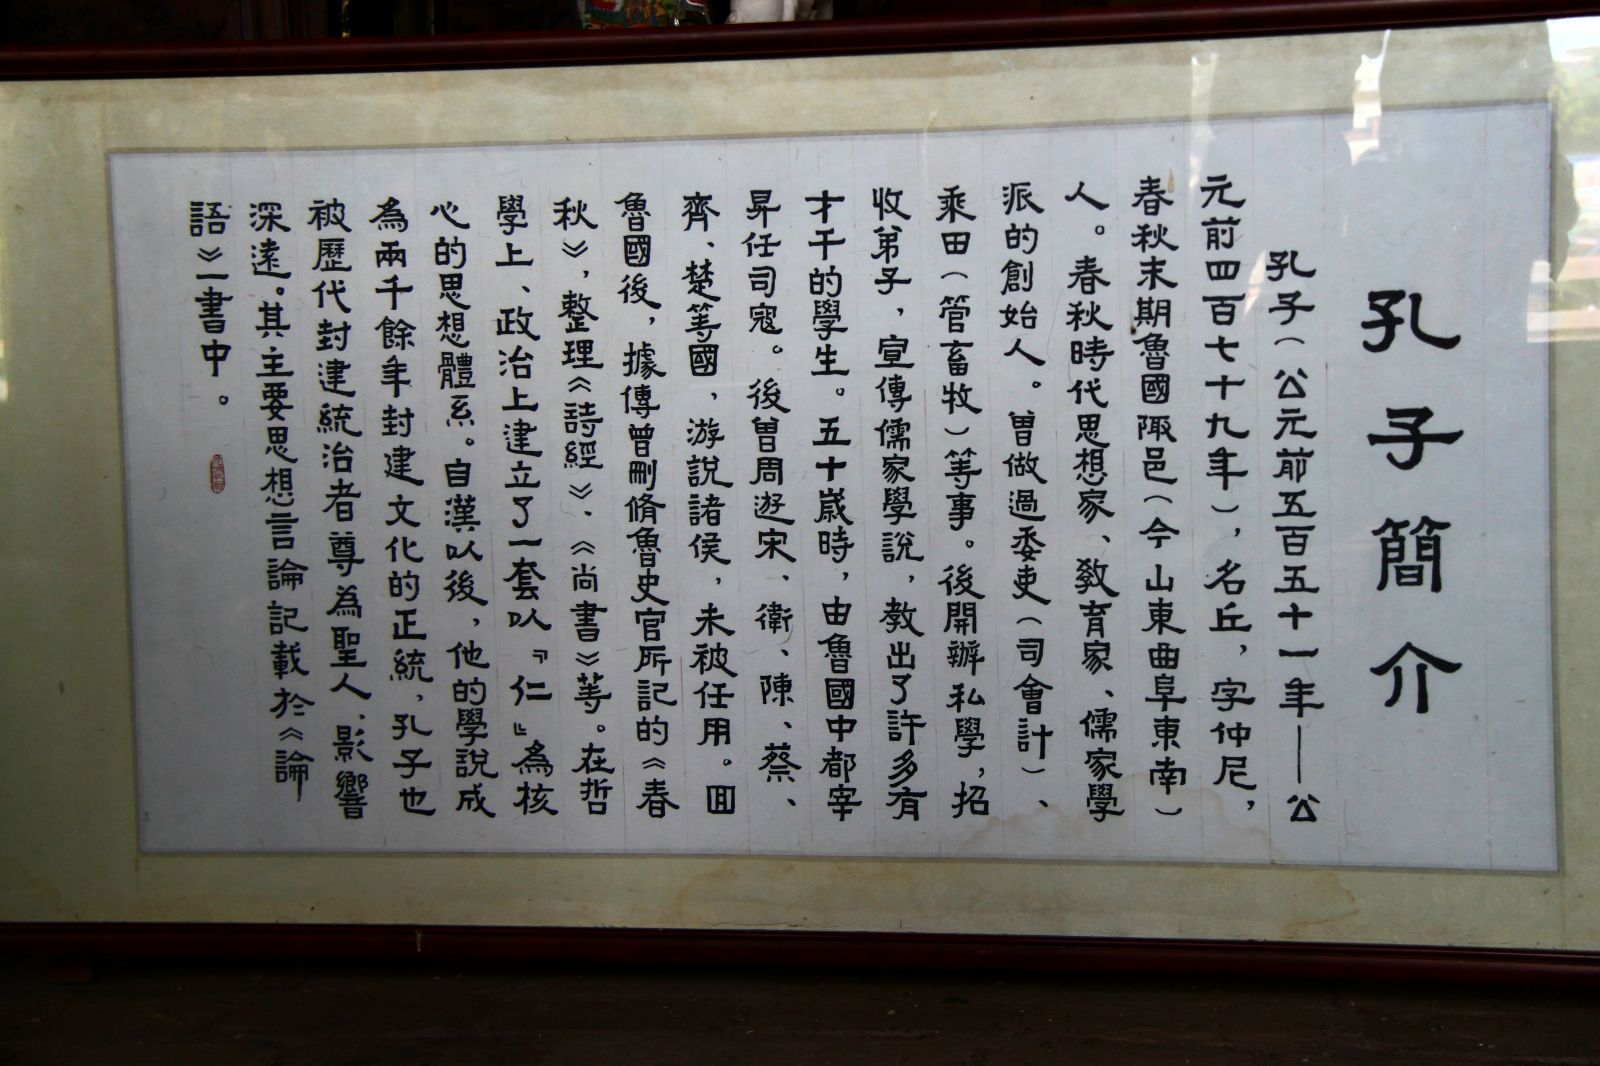 孔子簡介
孔子（公元前五百五十一年——公
元前四百七十九年），名丘，字仲尼，
春秋末期魯國陬邑（今山東曲阜東南）
人。春秋時代思想家、教育家、儒家學
派的創始人。曾做過委吏（司會計）、
乘田（管畜牧）等事。後開辦私學，招
收弟子，宣傳儒家學說，教出了許多有
才干的學生。五十歲時，由魯國中都宰
昇任司寇。後曾周遊宋、衛、陳、蔡、
齊、楚等國，游說諸侯，未被任用。回
魯國後，據傳曾刪脩魯史官所記的《春
秋》，整理《詩經》、《尚書》等。在哲
學上、政治上建立了一套以『仁』為核
心的思想體系。自漢以後，他的學說成
為兩千餘年封建文化的正統，孔子也
被歷代封建統治者尊為聖人，影響
深遠。其主要思想言論記載於《論
語》一書中。